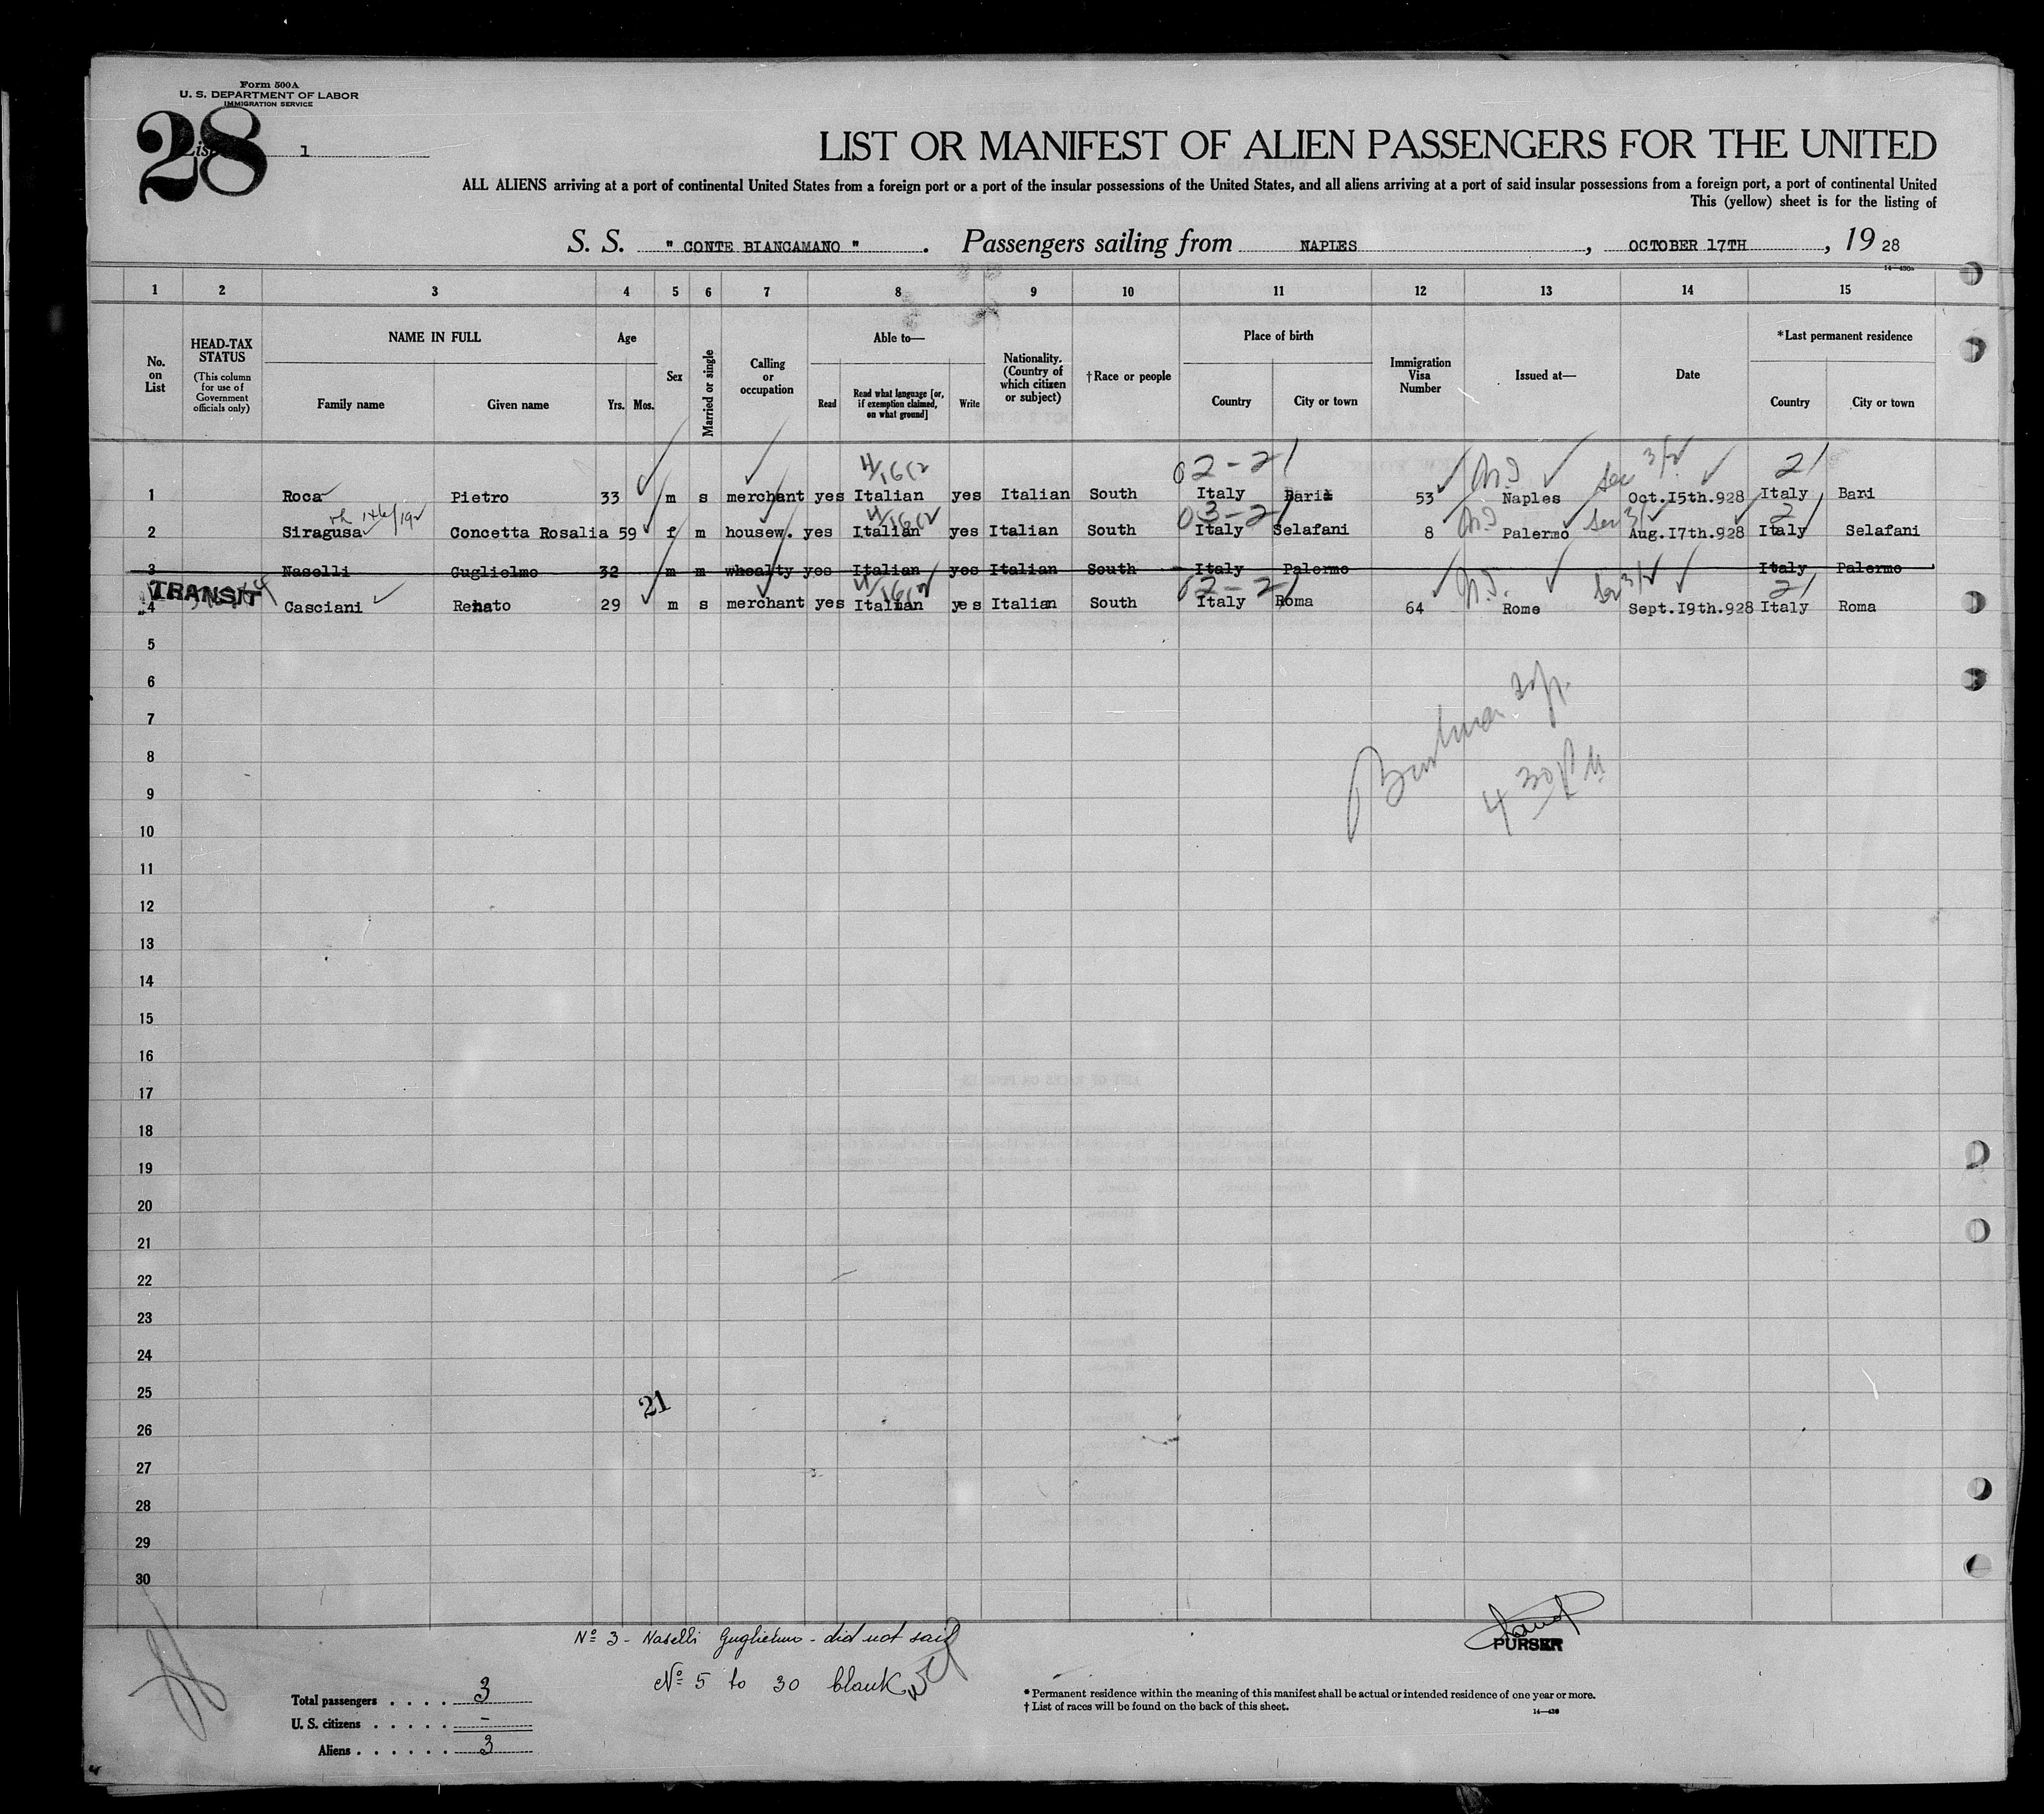 Form 500A
U. S. DEPARTMENT OF LABOR
IMMIGRATION SERVICE
28
List 1
LIST OR MANIFEST OF ALIEN PASSENGERS FOR THE UNITED
ALL ALIENS arriving at a port of continental United States from a foreign port or a port of the insular possessions of the United States, and all aliens arriving at a port of said insular possessions from a foreign port, a port of continental United
This (yellow) sheet is for the listing of
S. S. " CONTE BIANCAMANO " . Passengers sailing from NAPLES , OCTOBER 17TH , 19 28
1 2 3 4 5 6 7 8 9 10 11 12 13 14 15
No. on List
HEAD-TAX STATUS
(This column for use of Government officials only)
NAME IN FULL
Family name Given name
Age
Yrs. Mos.
Sex
Married or single
Calling or occupation
Able to—
Read
Read what language [or, if exemption claimed, on what ground]
Write
Nationality. (Country of which citizen or subject)
†Race or people
Place of birth
Country City or town
Immigration Visa Number
Issued at—
Date
*Last permanent residence
Country City or town
02-21 21
1 Roca Pietro 33 m s merchant yes Italian yes Italian South Italy Bari 53 Naples Oct.15th.928 Italy Bari
03-21 21
2 Siragusa Concetta Rosalia 59 f m housew. yes Italian yes Italian South Italy Selafani 8 Palermo Aug.17th.928 Italy Selafani
3 Naselli Guglielmo 32 m m whealty yes Italian yes Italian South Italy Palermo Italy Palermo
TRANSIT
02-21 21
4 Casciani Renato 29 m s merchant yes Italian yes Italian South Italy Roma 64 Rome Sept.19th.928 Italy Roma
5
6
7
8
9
10
11
12
13
14
15
16
17
18
19
20
21
22
23
24
25
21
26
27
28
29
30
4 30 PM
Nº 3 - Naselli Guglielmo - did not sail
Nº 5 to 30 blank
PURSER
Total passengers . . . . 3
U. S. citizens . . . . . -
Aliens . . . . . . 3
* Permanent residence within the meaning of this manifest shall be actual or intended residence of one year or more.
† List of races will be found on the back of this sheet.